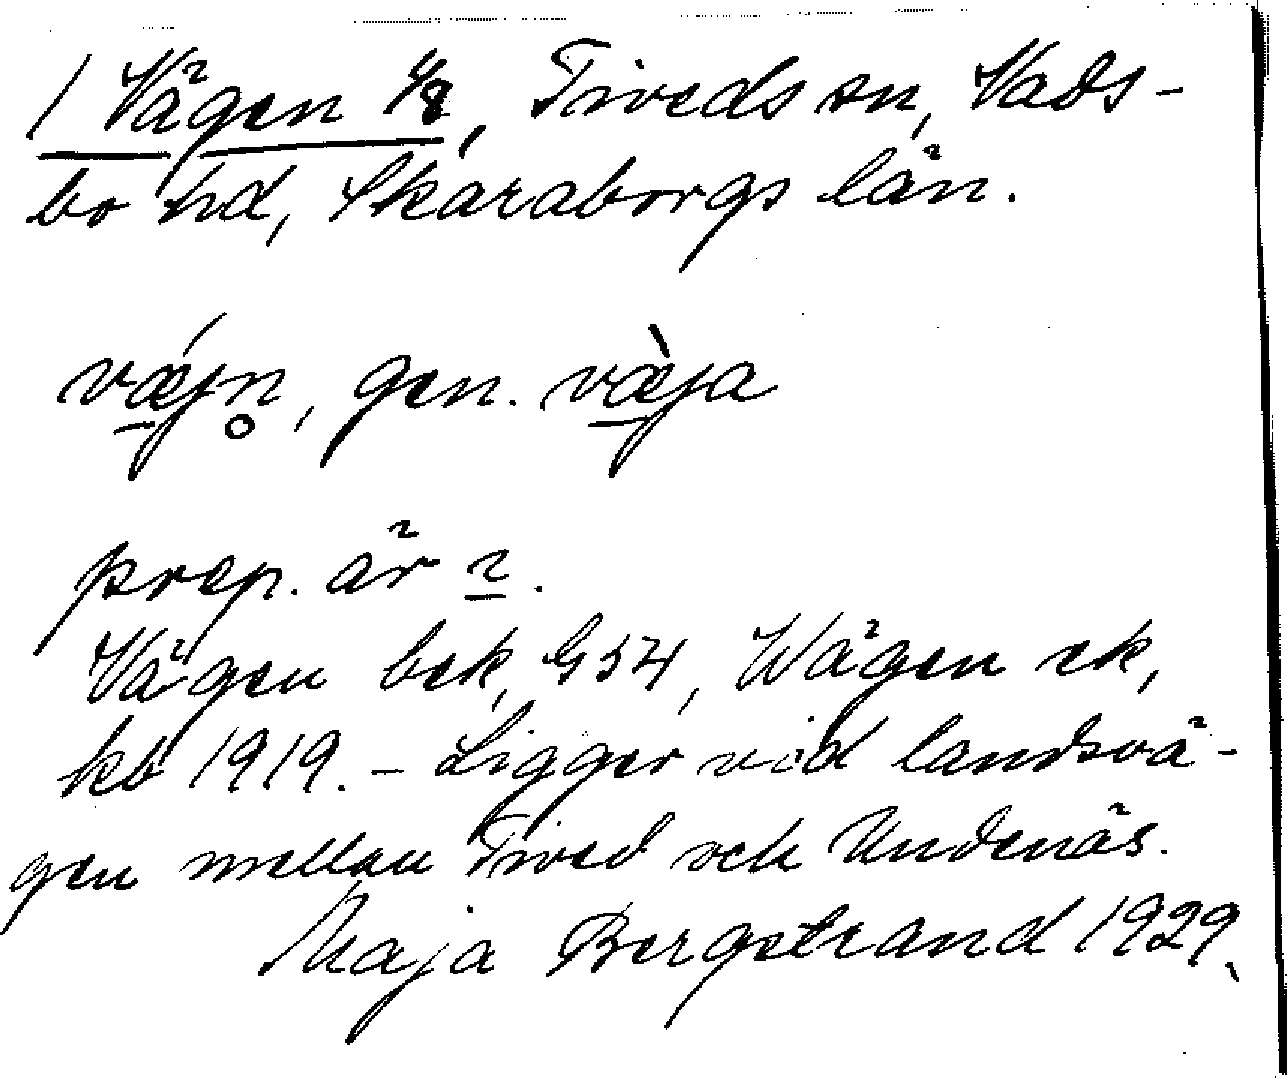 1 Vägen 1/8, Tiveds sn, Vads-
bo hd, Skaraborgs län.
vǽ̱jn̥, gen. væ̱̀ja
prep. är i.
Vägen bek, G54, Wägen ek,
kb 1919. – Ligger vid landsvä-
gen mellan Tived och Undenäs.
Maja Bergstrand 1929.